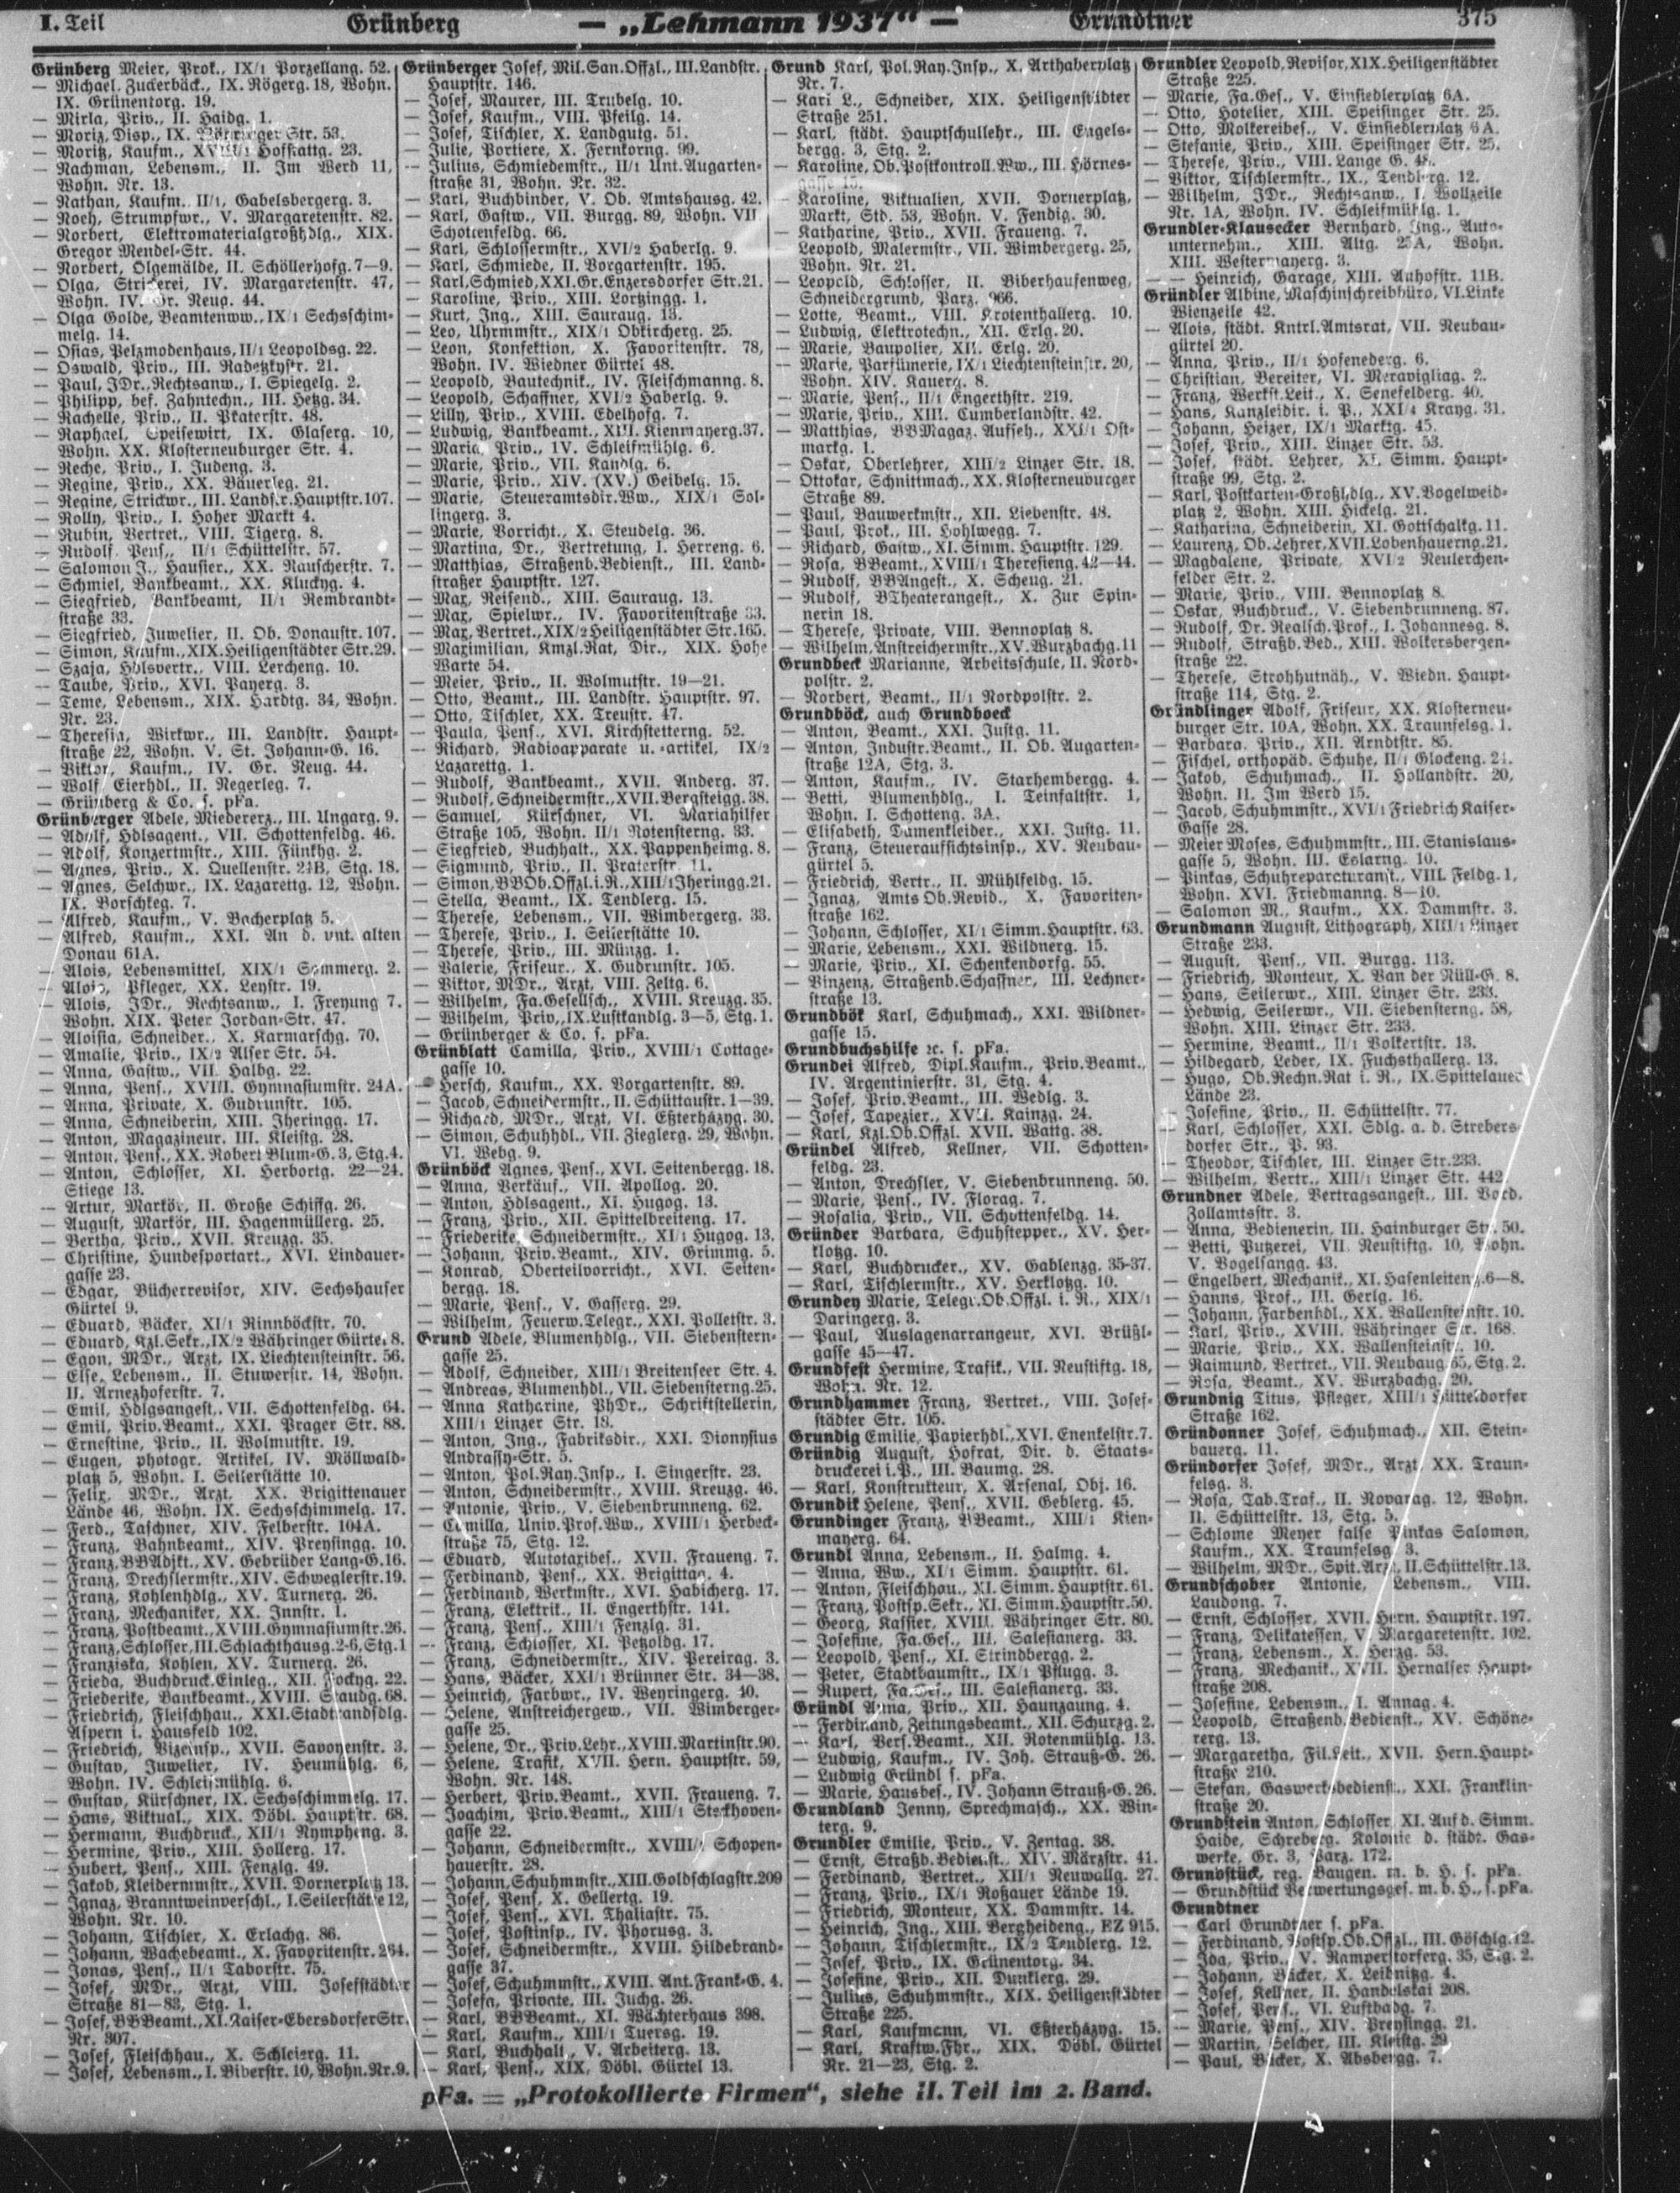 I. Teil Grünberg — „Lehmann 1937“ — Grundtner 375
Grünberg Meier, Prok., IX/1 Porzellang. 52.
— Michael, Zuckerbäck., IX. Rögerg. 18, Wohn.
IX. Grünentorg. 19.
— Mirla, Priv., II. Haidg. 1.
— Moriz, Disp., IX. Str. 53.
— Moritz, Kaufm., Hofstattg. 23.
— Nachman, Lebensm., II. Im Werd 11,
Wohn. Nr. 13.
— Nathan, Kaufm., II/1, Gabelsbergerg. 3.
— Noeh, Strumpfwr., V. Margaretenstr. 82.
— Norbert, Elektromaterialgroßhdlg., XIX.
Gregor Mendel-Str. 44.
— Norbert, Ölgemälde, II. Schöllerhofg. 7—9.
— Olga, Strickerei, IV. Margaretenstr. 47,
Wohn. IV. Gr. Neug. 44.
— Olga Golde, Beamtenww., IX/1 Sechsschim-
melg. 14.
— Osias, Pelzmodenhaus, II/1 Leopoldsg. 22.
— Oswald, Priv., III. Radetzkystr. 21.
— Paul, JDr., Rechtsanw., I. Spiegelg. 2.
— Philipp, bef. Zahntechn., III. Hetzg. 34.
— Rachelle, Priv., II. Praterstr. 48.
— Raphael, Speisewirt, IX. Glaserg. 10,
Wohn. XX. Klosterneuburger Str. 4.
— Reche, Priv., I. Judeng. 3.
— Regine, Priv., XX. Bäuerleg. 21.
— Regine, Strickwr., III. Landstr. Hauptstr. 107.
— Rolly, Priv., I. Hoher Markt 4.
— Rubin, Vertret., VIII. Tigerg. 8.
— Rudolf, Pens., II/1 Schüttelstr. 57.
— Salomon J., Hausier., XX. Rauscherstr. 7.
— Schmiel, Bankbeamt., XX. Kluckyg. 4.
— Siegfried, Bankbeamt, II/1 Rembrandt-
straße 33.
— Siegfried, Juwelier, II. Ob. Donaustr. 107.
— Simon, Kaufm., XIX. Heiligenstädter Str. 29.
— Szaja, Hdlsvertr., VIII. Lercheng. 10.
— Taube, Priv., XVI. Payerg. 3.
— Teme, Lebensm., XIX. Hardtg. 34, Wohn.
Nr. 23.
— Theresia, Wirkwr., III. Landstr. Haupt-
straße 22, Wohn. V. St. Johann-G. 16.
— Viktor, Kaufm., IV. Gr. Neug. 44.
— Wolf, Eierhdl., II. Negerleg. 7.
— Grünberg & Co. s. pFa.
Grünberger Adele, Miedererz., III. Ungarg. 9.
— Adolf, Hdlsagent., VII. Schottenfeldg. 46.
— Adolf, Konzertmstr., XIII. Fünkhg. 2.
— Agnes, Priv., X. Quellenstr. 24B, Stg. 18.
— Agnes, Selchwr., IX. Lazarettg. 12, Wohn.
IX. Borschkeg. 7.
— Alfred, Kaufm., V. Bacherplatz 5.
— Alfred, Kaufm., XXI. An d. unt. alten
Donau 61A.
— Alois, Lebensmittel, XIX/1 Sommerg. 2.
— Alois, Pfleger, XX. Leystr. 19.
— Alois, JDr., Rechtsanw., I. Freyung 7.
Wohn. XIX. Peter Jordan-Str. 47.
— Aloisia, Schneider., X. Karmarschg. 70.
— Amalie, Priv., IX/2 Alser Str. 54.
— Anna, Gastw., VII. Halbg. 22.
— Anna, Pens., XVIII. Gymnasiumstr. 24A.
— Anna, Private, X. Gudrunstr. 105.
— Anna, Schneiderin, XIII. Jheringg. 17.
— Anton, Magazineur, III. Kleistg. 28.
— Anton, Pens., XX. Robert Blum-G. 3, Stg. 4.
— Anton, Schlosser, XI. Herbortg. 22—24.
Stiege 13.
— Artur, Markör, II. Große Schiffg. 26.
— August, Markör, III. Hagenmüllerg. 25.
— Bertha, Priv., XVII. Kreuzg. 35.
— Christine, Hundesportart., XVI. Lindauer-
gasse 23.
— Edgar, Bücherrevisor, XIV. Sechshauser
Gürtel 9.
— Eduard, Bäcker, XI/1 Rinnböckstr. 70.
— Eduard, Kzl.Sekr., IX/2 Währinger Gürtel 8.
— Egon, MDr., Arzt, IX. Liechtensteinstr. 56.
— Else, Lebensm., II. Stuwerstr. 14, Wohn.
II. Arnezhoferstr. 7.
— Emil, Hdlgsangest., VII. Schottenfeldg. 64.
— Emil, Priv.Beamt., XXI. Prager Str. 88.
— Ernestine, Priv., II. Wolmutstr. 19.
— Eugen, photogr. Artikel, IV. Möllwald-
platz 5, Wohn. I. Seilerstätte 10.
— Felix, MDr., Arzt, XX. Brigittenauer
Lände 46, Wohn. IX. Sechsschimmelg. 17.
— Ferd., Taschner, XIV. Felberstr. 104A.
— Franz, Bahnbeamt., XIV. Preysingg. 10.
— Franz, BBAdjkt., XV. Gebrüder Lang-G. 16.
— Franz, Drechslermstr., XIV. Schweglerstr. 19.
— Franz, Kohlenhdlg., XV. Turnerg. 26.
— Franz, Mechaniker, XX. Innstr. 1.
— Franz, Postbeamt., XVIII. Gymnasiumstr. 26.
— Franz, Schlosser, III. Schlachthausg. 2-6, Stg. 1
— Franziska, Kohlen, XV. Turnerg. 26.
— Frieda, Buchdruck.Einleg., XII. Hockyg. 22.
— Friederike, Bankbeamt., XVIII. Staudg. 68.
— Friedrich, Fleischhau., XXI. Stadtrandsdlg.
Aspern i. Hausfeld 102.
— Friedrich, Vizeinsp., XVII. Savoyenstr. 3.
— Gustav, Juwelier, IV. Heumühlg. 6,
Wohn. IV. Schleifmühlg. 6.
— Gustav, Kürschner, IX. Sechsschimmelg. 17.
— Hans, Viktual., XIX. Döbl. Hauptstr. 68.
— Hermann, Buchdruck., XII/1 Nympheng. 3.
— Hermine, Priv., XIII. Hollerg. 17.
— Hubert, Pens., XIII. Fenzlg. 49.
— Jakob, Kleidermstr., XVII. Dornerplatz 13.
— Ignaz, Branntweinverschl., I. Seilerstätte 12,
Wohn. Nr. 10.
— Johann, Tischler, X. Erlachg. 86.
— Johann, Wachebeamt., X. Favoritenstr. 264.
— Jonas, Pens., II/1 Taborstr. 75.
— Josef, MDr., Arzt, VIII. Josefstädter
Straße 81—83, Stg. 1.
— Josef, BBBeamt., XI. Kaiser-Ebersdorfer Str.
Nr. 307.
— Josef, Fleischhau., X. Schleierg. 11.
— Josef, Lebensm., I. Biberstr. 10, Wohn. Nr. 9.
Grünberger Josef, Mil.San.Offzl., III. Landstr.
Hauptstr. 146.
— Josef, Maurer, III. Trubelg. 10.
— Josef, Kaufm., VIII. Pfeilg. 14.
— Josef, Tischler, X. Landgutg. 51.
— Julie, Portiere, X. Fernkorng. 99.
— Julius, Schmiedemstr., II/1 Unt. Augarten-
straße 31, Wohn. Nr. 32.
— Karl, Buchbinder, V. Ob. Amtshausg. 42.
— Karl, Gastw., VII. Burgg. 89, Wohn. VII
Schottenfeldg. 66.
— Karl, Schlossermstr., XVI/2 Haberlg. 9.
— Karl, Schmiede, II. Vorgartenstr. 195.
— Karl, Schmied, XXI. Gr. Enzersdorfer Str. 21.
— Karoline, Priv., XIII. Lortzingg. 1.
— Kurt, Ing., XIII. Sauraug. 13.
— Leo, Uhrmmstr., XIX/1 Obkircherg. 25.
— Leon, Konfektion, X. Favoritenstr. 78,
Wohn. IV. Wiedner Gürtel 48.
— Leopold, Bautechnik., IV. Fleischmanng. 8.
— Leopold, Schaffner, XVI/2 Haberlg. 9.
— Lilly, Priv., XVIII. Edelhofg. 7.
— Ludwig, Bankbeamt., XIII. Kienmayerg. 37.
— Maria, Priv., IV. Schleifmühlg. 6.
— Marie, Priv., VII. Kandlg. 6.
— Marie, Priv., XIV. (XV.) Geibelg. 15.
— Marie, Steueramtsdir.Ww., XIX/1 Sol-
lingerg. 3.
— Marie, Vorricht., X. Steudelg. 36.
— Martina, Dr., Vertretung, I. Herreng. 6.
— Matthias, Straßenb.Bedienst., III. Land-
straßer Hauptstr. 127.
— Max, Reisend., XIII. Sauraug. 13.
— Max, Spielwr., IV. Favoritenstraße 33.
— Max, Vertret., XIX/2 Heiligenstädter Str. 165.
— Maximilian, Kmzl.Rat, Dir., XIX. Hohe
Warte 54.
— Meier, Priv., II. Wolmutstr. 19—21.
— Otto, Beamt., III. Landstr. Hauptstr. 97.
— Otto, Tischler, XX. Treustr. 47.
— Paula, Pens., XVI. Kirchstetterng. 52.
— Richard, Radioapparate u. -artikel, IX/2
Lazarettg. 1.
— Rudolf, Bankbeamt., XVII. Anderg. 37.
— Rudolf, Schneidermstr., XVII. Bergsteigg. 38.
— Samuel, Kürschner, VI. Mariahilfer
Straße 105, Wohn. II/1 Rotensterng. 33.
— Siegfried, Buchhalt., XX. Pappenheimg. 8.
— Sigmund, Priv., II. Praterstr. 11.
— Simon, BBOb.Offzl.i.R., XIII/1 Jheringg. 21.
— Stella, Beamt., IX. Tendlerg. 15.
— Therese, Lebensm., VII. Wimbergerg. 33.
— Therese, Priv., I. Seilerstätte 10.
— Therese, Priv., III. Münzg. 1.
— Valerie, Friseur., X. Gudrunstr. 105.
— Viktor, MDr., Arzt, VIII. Zeltg. 6.
— Wilhelm, Fa.Gesellsch., XVIII. Kreuzg. 35.
— Wilhelm, Priv., IX. Lustkandlg. 3—5, Stg. 1.
— Grünberger & Co. s. pFa.
Grünblatt Camilla, Priv., XVIII/1 Cottage-
gasse 10.
— Hersch, Kaufm., XX. Vorgartenstr. 89.
— Jacob, Schneidermstr., II. Schüttaustr. 1—39.
— Richard, MDr., Arzt, VI. Eßterházyg. 30.
— Simon, Schuhhdl., VII. Zieglerg. 29, Wohn.
VI. Webg. 9.
Grünböck Agnes, Pens., XVI. Seitenbergg. 18.
— Anna, Verkäuf., VII. Apollog. 20.
— Anton, Hdlsagent., XI. Hugog. 13.
— Franz, Priv., XII. Spittelbreiteng. 17.
— Friederike, Schneidermstr., XI/1 Hugog. 13.
— Johann, Priv.Beamt., XIV. Grimmg. 5.
— Konrad, Oberteilvorricht., XVI. Seiten-
bergg. 18.
— Marie, Pens., V. Gasserg. 29.
— Wilhelm, Feuerw.Telegr., XXI. Polletstr. 3.
Grund Adele, Blumenhdlg., VII. Siebenstern-
gasse 25.
— Adolf, Schneider, XIII/1 Breitenseer Str. 4.
— Andreas, Blumenhdl., VII. Siebensterng. 25.
— Anna Katharine, PhDr., Schriftstellerin,
XIII/1 Linzer Str. 18.
— Anton, Ing., Fabriksdir., XXI. Dionysius
Andrassy-Str. 5.
— Anton, Pol.Ray.Insp., I. Singerstr. 23.
— Anton, Schneidermstr., XVIII. Kreuzg. 46.
— Antonie, Priv., V. Siebenbrunneng. 62.
— Camilla, Univ.Prof.Ww., XVIII/1 Herbeck-
straße 75, Stg. 12.
— Eduard, Autotaxibes., XVII. Fraueng. 7.
— Ferdinand, Pens., XX. Brigittag. 4.
— Ferdinand, Werkmstr., XVI. Habicherg. 17.
— Franz, Elektrik., II. Engerthstr. 141.
— Franz, Pens., XIII/1 Fenzlg. 31.
— Franz, Schlosser, XI. Petzoldg. 17.
— Franz, Schneidermstr., XIV. Pereirag. 3.
— Hans, Bäcker, XXI/1 Brünner Str. 34—38.
— Heinrich, Farbwr., IV. Weyringerg. 40.
— Helene, Anstreichergew., VII. Wimberger-
gasse 25.
— Helene, Dr., Priv.Lehr., XVIII. Martinstr. 90.
— Helene, Trafik, XVII. Hern. Hauptstr. 59,
Wohn. Nr. 148.
— Herbert, Priv.Beamt., XVII. Fraueng. 7.
— Joachim, Priv.Beamt., XIII/1 Steckhoven-
gasse 22.
— Johann, Schneidermstr., XVIII/1 Schopen-
hauerstr. 28.
— Johann, Schuhmmstr., XIII. Goldschlagstr. 209
— Josef, Pens., X. Gellertg. 19.
— Josef, Pens., XVI. Thaliastr. 75.
— Josef, Postinsp., IV. Phorusg. 3.
— Josef, Schneidermstr., XVIII. Hildebrand-
gasse 37.
— Josef, Schuhmmstr., XVIII. Ant. Frank-G. 4.
— Josefa, Private, III. Juchg. 26.
— Karl, BBBeamt., XI. Wächterhaus 398.
— Karl, Kaufm., XIII/1 Tuersg. 19.
— Karl, Buchhalt., V. Arbeiterg. 13.
— Karl, Pens., XIX. Döbl. Gürtel 13.
Grund Karl, Pol.Ray.Insp., X. Arthaberplatz
Nr. 7.
— Karl L., Schneider, XIX. Heiligenstädter
Straße 251.
— Karl, städt. Hauptschullehr., III. Engels-
bergg. 3, Stg. 2.
— Karoline, Ob.Postkontroll.Ww., III. Hörnes-
gasse 15.
— Karoline, Viktualien, XVII. Dornerplatz,
Markt, Std. 53, Wohn. V. Fendig. 30.
— Katharine, Priv., XVII. Fraueng. 7.
— Leopold, Malermstr., VII. Wimbergerg. 25,
Wohn. Nr. 21.
— Leopold, Schlosser, II. Biberhaufenweg,
Schneidergrund, Parz. 966.
— Lotte, Beamt., VIII. Krotenthallerg. 10.
— Ludwig, Elektrotechn., XII. Erlg. 20.
— Marie, Baupolier, XII. Erlg. 20.
— Marie, Parfümerie, IX/1 Liechtensteinstr. 20,
Wohn. XIV. Kauerg. 8.
— Marie, Pens., II/1 Engerthstr. 219.
— Marie, Priv., XIII. Cumberlandstr. 42.
— Matthias, BBMagaz.Aufseh., XXI/1 Ost-
markg. 1.
— Oskar, Oberlehrer, XIII/2 Linzer Str. 18.
— Ottokar, Schnittmach., XX. Klosterneuburger
Straße 89.
— Paul, Bauwerkmstr., XII. Liebenstr. 48.
— Paul, Prok., III. Hohlwegg. 7.
— Richard, Gastw., XI. Simm. Hauptstr. 129.
— Rosa, BBeamt., XVIII/1 Theresieng. 42—44.
— Rudolf, BBAngest., X. Scheug. 21.
— Rudolf, BTheaterangest., X. Zur Spin-
nerin 18.
— Therese, Private, VIII. Bennoplatz 8.
— Wilhelm, Anstreichermstr., XV. Wurzbachg. 11
Grundbeck Marianne, Arbeitsschule, II. Nord-
polstr. 2.
— Norbert, Beamt., II/1 Nordpolstr. 2.
Grundböck, auch Grundboeck
— Anton, Beamt., XXI. Justg. 11.
— Anton, Industr.Beamt., II. Ob. Augarten-
straße 12A, Stg. 3.
— Anton, Kaufm., IV. Starhembergg. 4.
— Betti, Blumenhdlg., I. Teinfaltstr. 1,
Wohn. I. Schotteng. 3A.
— Elisabeth, Damenkleider., XXI. Justg. 11.
— Franz, Steueraufsichtsinsp., XV. Neubau-
gürtel 5.
— Friedrich, Vertr., II. Mühlfeldg. 15.
— Ignaz, Amts Ob.Revid., X. Favoriten-
straße 162.
— Johann, Schlosser, XI/1 Simm. Hauptstr. 63.
— Marie, Lebensm., XXI. Wildnerg. 15.
— Marie, Priv., XI. Schenkendorfg. 55.
— Vinzenz, Straßenb.Schaffner, III. Lechner-
straße 13.
Grundbök Karl, Schuhmach., XXI. Wildner-
gasse 15.
Grundbuchshilfe ꝛc. s. pFa.
Grundei Alfred, Dipl.Kaufm., Priv.Beamt.,
IV. Argentinierstr. 31, Stg. 4.
— Josef, Priv.Beamt., III. Wedlg. 3.
— Josef, Tapezier., XVII. Kainzg. 24.
— Karl, Kzl.Ob.Offzl. XVII. Wattg. 38.
Gründel Alfred, Kellner, VII. Schotten-
feldg. 23.
— Anton, Drechsler, V. Siebenbrunneng. 50.
— Marie, Pens., IV. Florag. 7.
— Rosalia, Priv., VII. Schottenfeldg. 14.
Gründer Barbara, Schuhstepper., XV. Her-
klotzg. 10.
— Karl, Buchdrucker., XV. Gablenzg. 35-37.
— Karl, Tischlermstr., XV. Herklotzg. 10.
Grundey Marie, Telegr.Ob.Offzl. i. R., XIX/1
Daringerg. 3.
— Paul, Auslagenarrangeur, XVI. Brüßl-
gasse 45—47.
Grundfest Hermine, Trafik., VII. Neustiftg. 18,
Wohn. Nr. 12.
Grundhammer Franz, Vertret., VIII. Josef-
städter Str. 105.
Grundig Emilie, Papierhdl., XVI. Enenkelstr. 7.
Gründig August, Hofrat, Dir. d. Staats-
druckerei i. P., III. Baumg. 28.
— Karl, Konstrukteur, X. Arsenal, Obj. 16.
Grundik Helene, Pens., XVII. Geblerg. 45.
Grundinger Franz, BBeamt., XIII/1 Kien-
mayerg. 64.
Grundl Anna, Lebensm., II. Halmg. 4.
— Anna, Ww., XI/1 Simm. Hauptstr. 61.
— Anton, Fleischhau., XI. Simm. Hauptstr. 61.
— Franz, Postsp.Sekr., XI. Simm. Hauptstr. 50.
— Georg, Kassier, XVIII. Währinger Str. 80.
— Josefine, Fa.Ges., III. Salesianerg. 33.
— Leopold, Pens., XI. Strindbergg. 2.
— Peter, Stadtbaumstr., IX/1 Pflugg. 3.
— Rupert, Fa.Ges., III. Salesianerg. 33.
Gründl Anna, Priv., XII. Haunzaung. 4.
— Ferdinand, Zeitungsbeamt., XII. Schurzg. 2.
— Karl, Vers.Beamt., XII. Rotenmühlg. 13.
— Ludwig, Kaufm., IV. Joh. Strauß-G. 26.
— Ludwig Gründl s. pFa.
— Marie, Hausbes., IV. Johann Strauß-G. 26.
Grundland Jenny, Sprechmasch., XX. Win-
terg. 9.
Grundler Emilie, Priv., V. Zentag. 38.
— Ernst, Straßb.Bedienst., XIV. Märzstr. 41.
— Ferdinand, Vertret., XII/1 Neuwallg. 27.
— Franz, Priv., IX/1 Roßauer Lände 19.
— Friedrich, Monteur, XX. Dammstr. 14.
— Heinrich, Ing., XIII. Bergheideng., EZ 915.
— Johann, Tischlermstr., IX/2 Tendlerg. 12.
— Josef, Priv., IX. Grünentorg. 34.
— Josefine, Priv., XII. Dunklerg. 29.
— Julius, Schuhmmstr., XIX. Heiligenstädter
Straße 225.
— Karl, Kaufmann, VI. Eßterházyg. 15.
— Karl, Kraftw.Fhr., XIX. Döbl. Gürtel
Nr. 21—23, Stg. 2.
Grundler Leopold, Revisor, XIX. Heiligenstädter
Straße 225.
— Marie, Fa.Ges., V. Einsiedlerplatz 6A.
— Otto, Hotelier, XIII. Speisinger Str. 25.
— Otto, Molkereibes., V. Einsiedlerplatz 6A.
— Stefanie, Priv., XIII. Speisinger Str. 25.
— Therese, Priv., VIII. Lange G. 48.
— Viktor, Tischlermstr., IX., Tendlerg. 12.
— Wilhelm, JDr., Rechtsanw., I. Wollzeile
Nr. 1A, Wohn. IV. Schleifmühlg. 1.
Grundler-Klausecker Bernhard, Ing., Auto-
unternehm., XIII. Altg. 25A, Wohn.
XIII. Westermayerg. 3.
— — Heinrich, Garage, XIII. Auhofstr. 11B.
Gründler Albine, Maschinschreibbüro, VI. Linke
Wienzeile 42.
— Alois, städt. Kntrl.Amtsrat, VII. Neubau-
gürtel 20.
— Anna, Priv., II/1 Hofenederg. 6.
— Christian, Bereiter, VI. Meravigliag. 2.
— Franz, Werkst.Leit., X. Senefelderg. 40.
— Hans, Kanzleidir. i. P., XXI/4 Krayg. 31.
— Johann, Heizer, IX/1 Marktg. 45.
— Josef, Priv., XIII. Linzer Str. 53.
— Josef, städt. Lehrer, XI. Simm. Haupt-
straße 99, Stg. 2.
— Karl, Postkarten-Großhdlg., XV. Vogelweid-
platz 2, Wohn. XIII. Hickelg. 21.
— Katharina, Schneiderin, XI. Gottschalkg. 11.
— Laurenz, Ob.Lehrer, XVII. Lobenhauerng. 21.
— Magdalene, Private, XVI/2 Neulerchen-
felder Str. 2.
— Marie, Priv., VIII. Bennoplatz 8.
— Oskar, Buchdruck., V. Siebenbrunneng. 87.
— Rudolf, Dr. Realsch.Prof., I. Johannesg. 8.
— Rudolf, Straßb.Bed., XIII. Wolkersbergen-
straße 22.
— Therese, Strohhutnäh., V. Wiedn. Haupt-
straße 114, Stg. 2.
Gründlinger Adolf, Friseur, XX. Klosterneu-
burger Str. 10A, Wohn. XX. Traunfelsg. 1.
— Barbara, Priv., XII. Arndtstr. 85.
— Fischel, orthopäd. Schuhe, II/1 Glockeng. 24.
— Jakob, Schuhmach., II. Hollandstr. 20,
Wohn. II. Im Werd 15.
— Jacob, Schuhmmstr., XVI/1 Friedrich Kaiser-
Gasse 28.
— Meier Moses, Schuhmmstr., III. Stanislaus-
gasse 5, Wohn. III. Eslarng. 10.
— Pinkas, Schuhreparaturanst., VIII. Feldg. 1,
Wohn. XVI. Friedmanng. 8—10.
— Salomon M., Kaufm., XX. Dammstr. 3.
Grundmann August, Lithograph, XIII/1 Linzer
Straße 233.
— August, Pens., VII. Burgg. 113.
— Friedrich, Monteur, X. Van der Nüll-G. 8.
— Hans, Seilerwr., XIII. Linzer Str. 233.
— Hedwig, Seilerwr., VII. Siebensterng. 58,
Wohn. XIII. Linzer Str. 233.
— Hermine, Beamt., II/1 Volkertstr. 13.
— Hildegard, Leder, IX. Fuchsthallerg. 13.
— Hugo, Ob.Rechn.Rat i. R., IX. Spittelauer
Lände 23.
— Josefine, Priv., II. Schüttelstr. 77.
— Karl, Schlosser, XXI. Sdlg. a. d. Strebers-
dorfer Str., P. 93.
— Theodor, Tischler, III. Linzer Str. 233.
— Wilhelm, Vertr., XIII/1 Linzer Str. 442
Grundner Adele, Vertragsangest., III. Vord.
Zollamtsstr. 3.
— Anna, Bedienerin, III. Hainburger Str. 50.
— Betti, Putzerei, VII. Neustiftg. 10, Wohn.
V. Vogelsangg. 43.
— Engelbert, Mechanik., XI. Hasenleiteng. 6—8.
— Hanns, Prof., III. Gerlg. 16.
— Johann, Farbenhdl., XX. Wallensteinstr. 10.
— Karl, Priv., XVIII. Währinger Str. 168.
— Marie, Priv., XX. Wallensteinstr. 10.
— Raimund, Vertret., VII. Neubaug. 65, Stg. 2.
— Rosa, Beamt., XV. Wurzbachg. 20.
Grundnig Titus, Pfleger, XIII/1 Hütteldorfer
Straße 162.
Gründonner Josef, Schuhmach., XII. Stein-
bauerg. 11.
Gründorfer Josef, MDr., Arzt, XX. Traun-
felsg. 3.
— Rosa, Tab.Traf., II. Novarag. 12, Wohn.
II. Schüttelstr. 13, Stg. 5.
— Schlome Meyer false Pinkas Salomon,
Kaufm., XX. Traunfelsg. 3.
— Wilhelm, MDr., Spit.Arzt, II. Schüttelstr. 13.
Grundschober Antonie, Lebensm., VIII.
Laudong. 7.
— Ernst, Schlosser, XVII. Hern. Hauptstr. 197.
— Franz, Delikatessen, V. Margaretenstr. 102.
— Franz, Lebensm., X. Herzg. 53.
— Franz, Mechanik., XVII. Hernalser Haupt-
straße 208.
— Josefine, Lebensm., I. Annag. 4.
— Leopold, Straßenb.Bedienst., XV. Schöne-
rerg. 13.
— Margaretha, Fil.Leit., XVII. Hern.Haupt-
straße 210.
— Stefan, Gaswerksbedienst., XXI. Franklin-
straße 20.
Grundstein Anton, Schlosser, XI. Auf d. Simm.
Haide, Schreberg. Kolonie d. städt. Gas-
werke, Gr. 3, Parz. 172.
Grundstück, reg. Baugen. m. b. H. s. pFa.
— Grundstück Verwertungsges. m. b. H., s. pFa.
Grundtner
— Carl Grundtner s. pFa.
— Ferdinand, Postsp.Ob.Offzl., III. Göschlg. 12.
— Ida, Priv., V. Ramperstorferg. 35, Stg. 2.
— Johann, Bäcker, X. Leibnitzg. 4.
— Josef, Kellner, II. Handelskai 208.
— Josef, Pens., VI. Luftbadg. 7.
— Marie, Pens., XIV. Preysingg. 21.
— Martin, Selcher, III. Kleistg. 29
— Paul, Bäcker, X. Absbergg. 7.
pFa. = „Protokollierte Firmen“, siehe II. Teil im 2. Band.